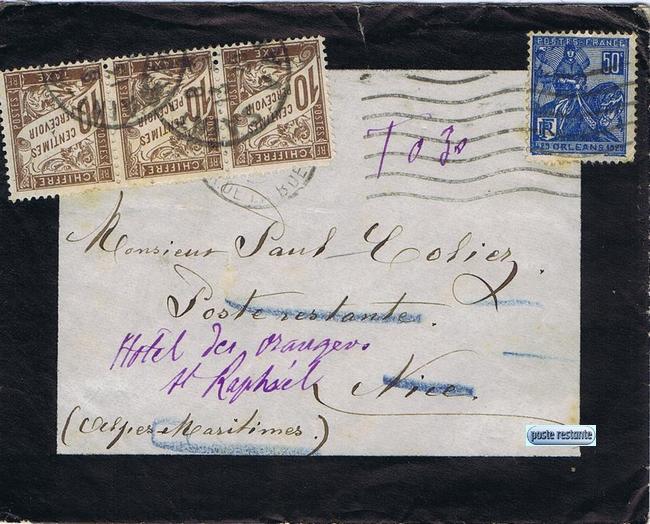 POSTES-FRANCE
50c
RF
1429 ORLEANS 1929
10
CENTIMES
A PERCEVOIR
CHIFFRE TAXE
10
CENTIMES
A PERCEVOIR
CHIFFRE TAXE
10
CENTIMES
A PERCEVOIR
CHIFFRE TAXE
RUE
T 0 30
Monsieur Paul
Poste restante.
Hôtel des Orangers
St Raphaël Nice.
(Alpes-Maritimes.)
poste restante